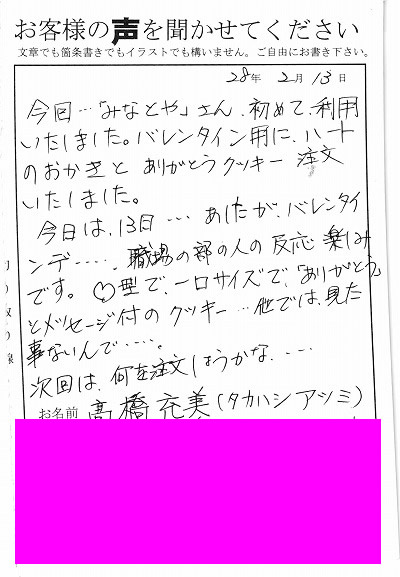 お客様の声を聞かせてください
文章でも箇条書きでもイラストでも構いません。ご自由にお書き下さい。
28年 2月 13日
今回…「みなとや」さん、初めて、利用
いたしました。バレンタイン用に、ハート
のおかきと ありがとうクッキー 注文
いたしました。
今日は、13日… あしたが、バレンタイ
ンデ……、職場の部の人の反応 楽しみ
です。♡型で、一口サイズで、「ありがとう」
とメッセージ付の クッキー…他では、見た
事ないんで…‥。
次回は、何を注文しようかな、…‥
お名前 髙橋充美(タカハシアツミ)